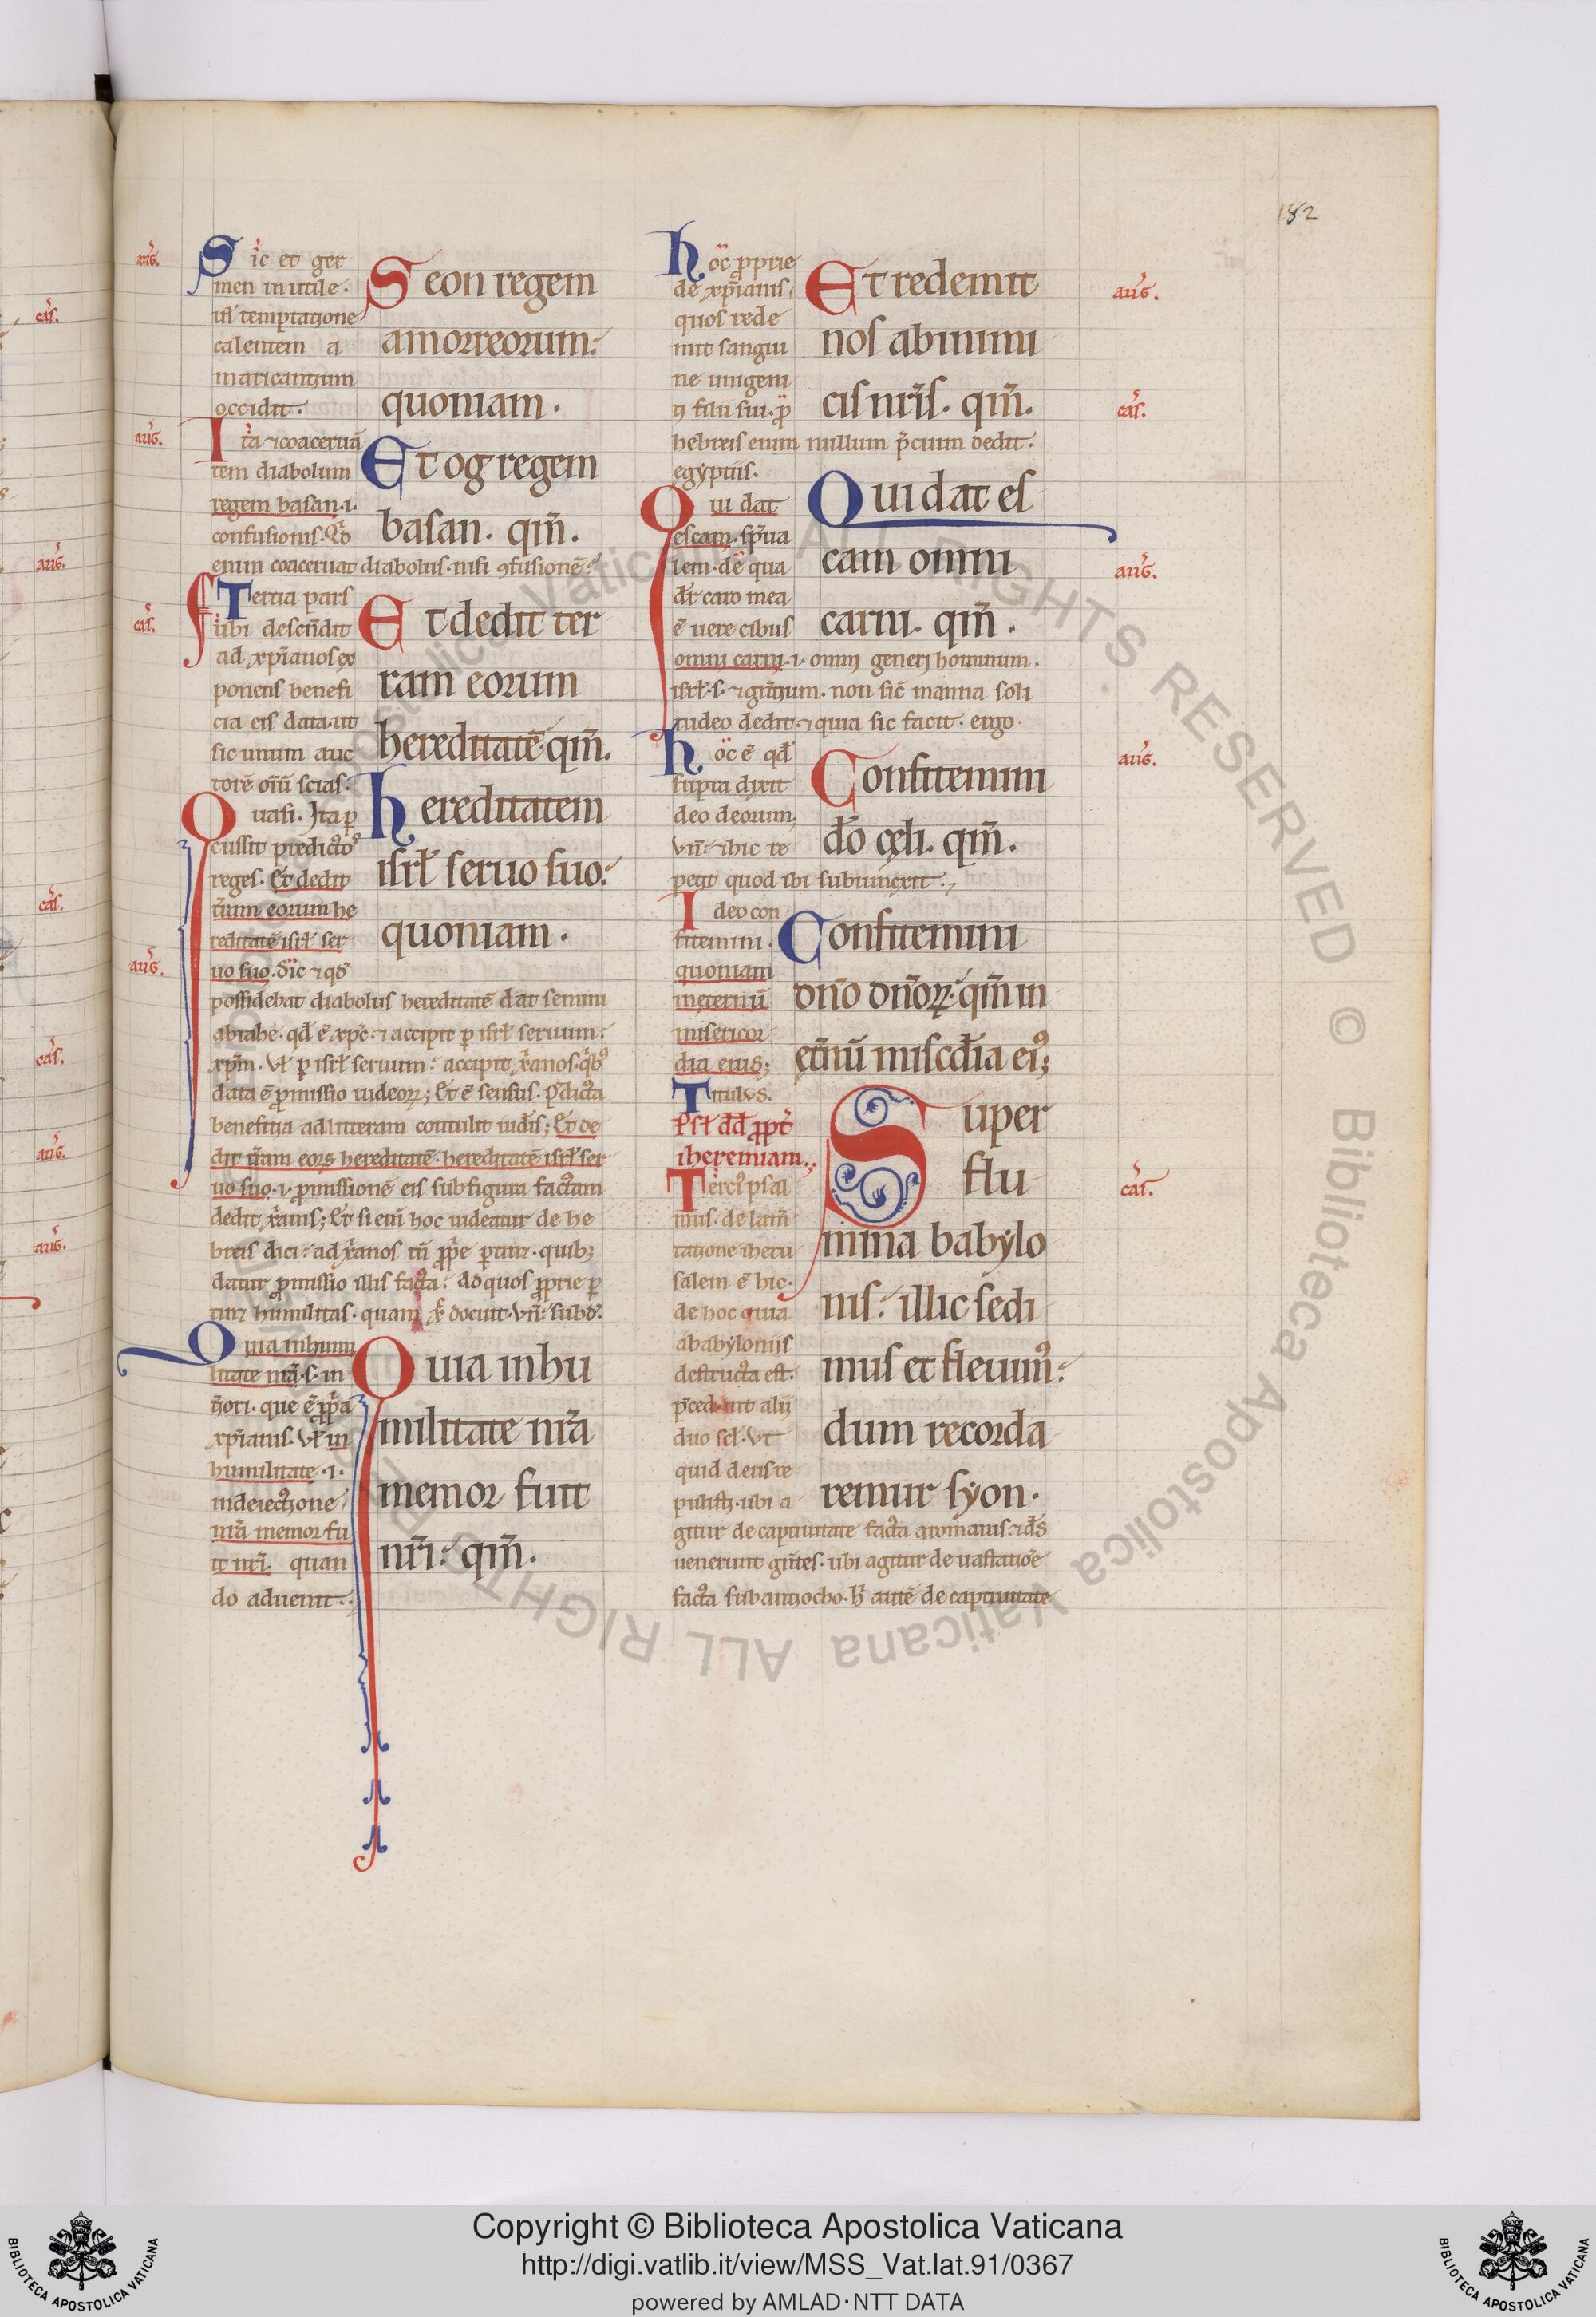 182
auḡ.
Sic̄ et ger
men inutile.
ul̄ temptatione
calentem a
maricantium
occidit.
Seon regem
amorreorum:
quoniam.
auḡ.
Ita ⁊ coaceruā
tem diabolum
regem basan .i.
confusionis. Qd̄
enim coaceruat diabolus nisi ꝯfusionē:
Et og regem
basan. qm̄.
cās.
Tertia pars
ubi descēdit
ad xp̄ianos ex
ponens benefi
cia eis data. ut
sic unum auc
torē oīū scias.
Et dedit ter
ram eorum
hereditatē. qm̄.
Quasi. Ita ꝑ
cussit predictoꝰ
reges. Et dedit
t̄ram eorum he
reditatē isrl̄ ser
uo suo. Sic̄ ⁊ qd̄
auḡ.
possidebat diabolus hereditatē dat semini
abrahe. qd̄ ē xp̄c. ⁊ accipit ꝑ isrl̄ seruum:
xp̄m. Vl̄ ꝑ isrl̄ seruum: accipit x̄anos. qͥbꝰ
data ē ꝓmissio iudeoꝝ; Et ē sensus. p̄dicta
beneficia ad litteram contulit iud̄is; Et de
dit t̄ram eoꝝ hereditatē. hereditatē isrl̄ ser
uo suo .i. ꝓmissionē eis sub figura factam
dedit x̄anis; Et si eni hoc uideatur de he
breis dici: ad x̄anos tn̄ ꝓp̄e ꝑtinꝫ. quibꝫ
datur ꝓmissio illis facta: ad quos ꝓprie ꝑ
tinꝫ humilitas. quam x̄ docuit. Vn̄: subd̄.
Hereditatem
isrl̄ seruo suo:
quoniam.
Quia in humi
litate nr̄a .s. in
que ē ꝓp̄a
xp̄ianis. Vl̄ in
humilitate .i.
in deiectione
nr̄a memor fu
it nr̄i. quan
do aduenit.
Quia in hu
militate nr̄a
memor fuit
nr̄i: qm̄.
Hoc̄ ꝓprie
de xp̄ianis,
quos rede
mit sangui
ne unigeni
ti filii sui. ꝓ
hebreis enim nullum p̄cium dedit.
egyptiis.
Et redemit
nos ab inimi
cis nr̄is. qm̄.
auḡ.
cās.
Qui dat
escam. sp̄ua
lem. de qua
dr̄ caro mea
ē uere cibus
omni carni .i. omni generi hominum.
isrl̄ .s. ⁊ gn̄tium. non sic̄ manna soli
iudeo dedit. ⁊ quia sic facit. ergo.
Qui dat es
cam omni
carni. qm̄.
auḡ.
Hoc̄ ē qd̄
supra dixit
deo deorum,
vn̄: ⁊ hic re
petit quod ibi subiunxit.
Confitemini
dō cęli. qm̄.
auḡ.
Ideo con
fitemini.
quoniam
in eternū
misericor
dia eius;
Confitemini
dn̄o dn̄oꝝ: qm̄ in
ęt̄nū misc̄dia eiꝰ;
Titulus.
Psl̄ dd̄ ꝓpt̄
iheremiam.
Terciꝰ psal
mus. de lam̄
tatione iheru
salem ē hic.
de hoc quia
a babyloniis
destructa est.
p̄cedunt alii
duo scl̄. vt
quid deus re
pulisti. ubi a
gitur de captiuitate facta a romanis: ⁊ d̄s
uenerunt gn̄tes. ubi agitur de uastatiōe
facta sub antiocho. h̄ autē de captiuitate
Super
flu
mina babylo
nis: illic sedi
mus et fleuimꝰ:
dum recorda
remur syon.
cās.
cās.
auḡ.
cās.
cās.
auḡ.
auḡ.
Biblioteca Apostolica Vaticana ALL RIGHTS RESERVED ©
Copyright © Biblioteca Apostolica Vaticana
http://digi.vatlib.it/view/MSS_Vat.lat.91/0367
powered by AMLAD·NTT DATA
BIBLIOTECA APOSTOLICA VATICANA
BIBLIOTECA APOSTOLICA VATICANA